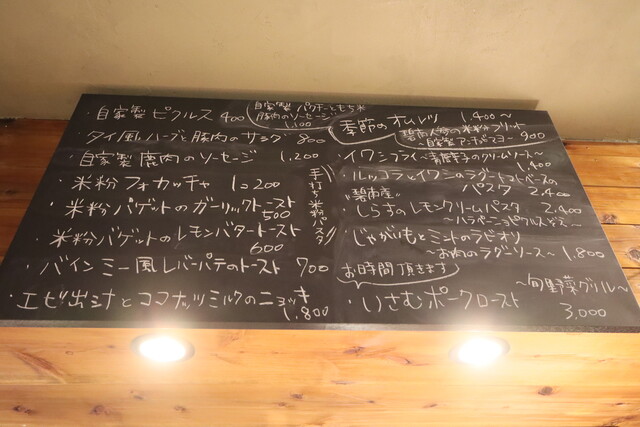 ・自家製ピクルス 400
自家製パクチーともち米
豚肉のソーセージ
1,100
・タイ風ハーブと豚肉のサラダ 800
・自家製鹿肉のソーセージ 1,200
・米粉フォカッチャ 1,200
・米粉バゲットのガーリックトースト
500
・米粉バゲットのレモンバタートースト
600
・バインミー風レバーパテのトースト 700
・エビ出汁とココナッツミルクのニョッキ
1,800
手打ち米粉パスタ
季節のオムレツ 1,400〜
碧南人参の米粉フリット
〜自家製アンチョビマヨ〜 900
・イワシフライ〜青唐辛子のクリームソース〜
1,400
・ルッコラとイワシのラグートマトベースの
パスタ 2,400
"碧南産"
しらすのレモンクリームパスタ 2,400
〜ハラペーニョピクルス添え〜
・じゃがいもとミントのラビオリ
〜お肉のラグーソース〜 1,800
お時間頂きます
・いさむポークロースト
〜旬野菜グリル〜
3,000